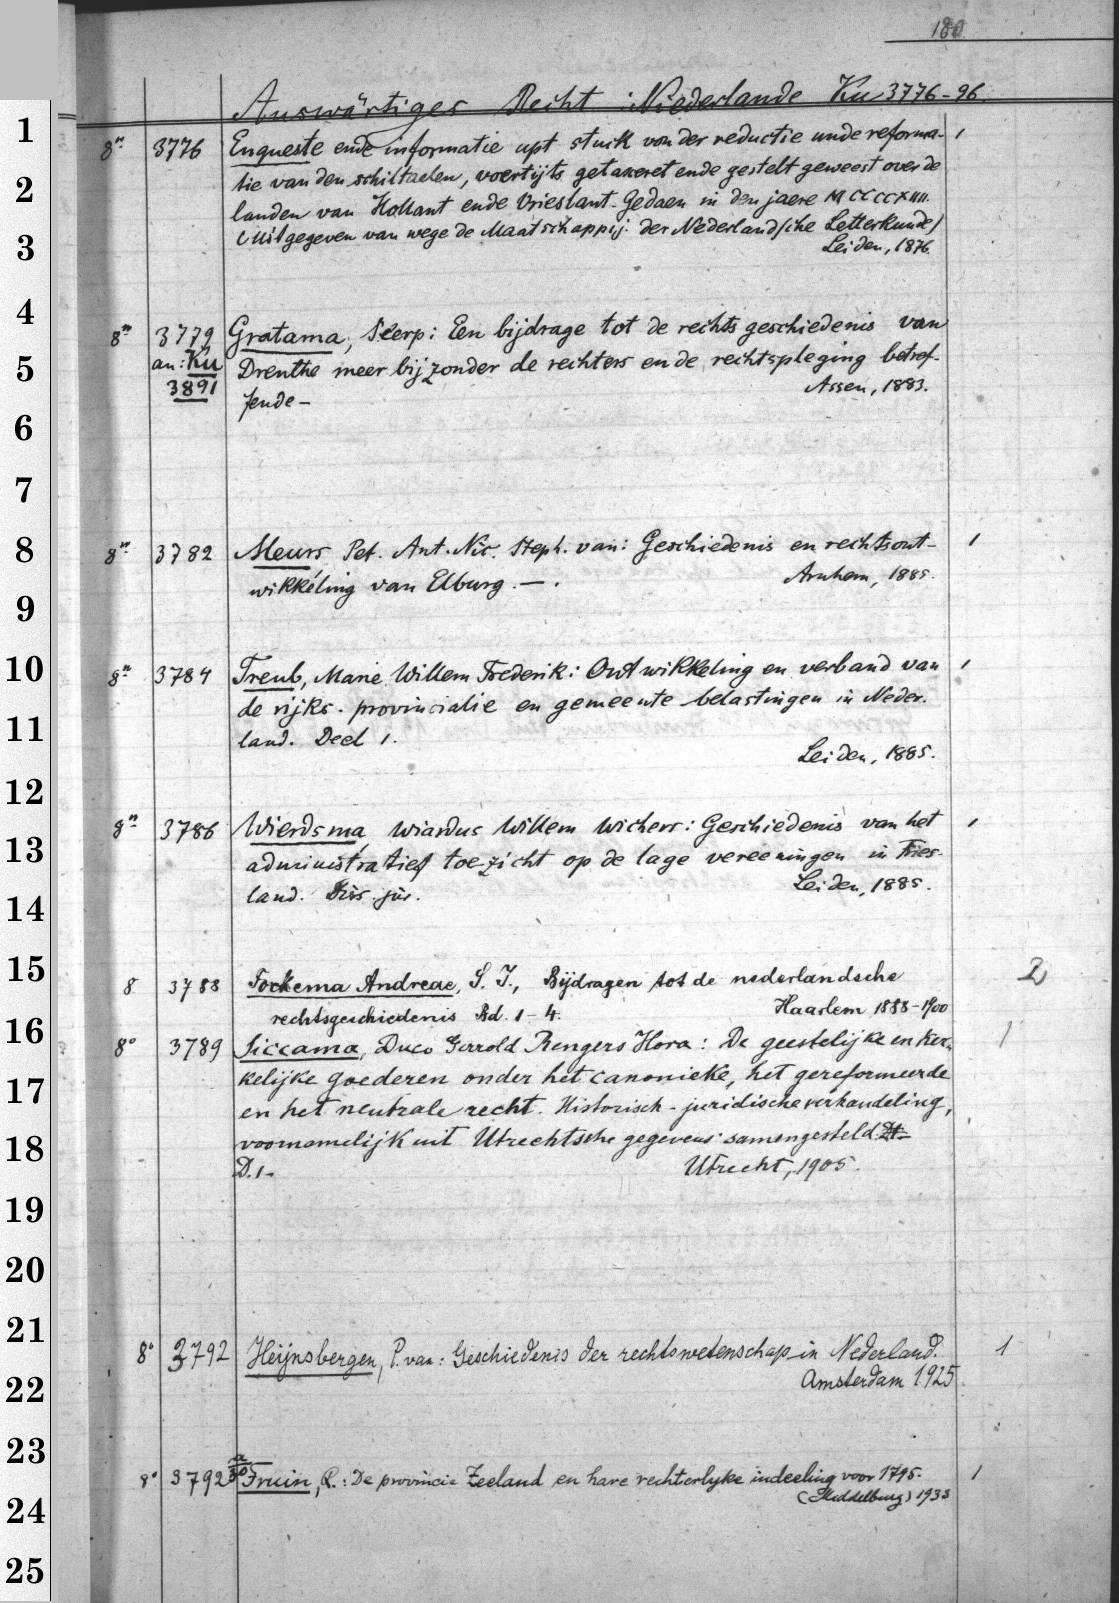 180
Auswärtiges Recht : Niederlande Ku 3776-96
1
8° 3776 Enqueste ende informatie upt stuck van der reductie unde reforma- 1
tie van den schiltaelen, voertijts getaxeret ende gestelt geweest over de
2
landen van Hollant ende Vrieslant. Gedaen in den jaere MCCCCXIIII.
(Uitgegeven van wege de Maatschappij der Nederlandsche Letterkunde)
3
Leiden, 1876.
4
8° 3779 Gratama, Seerp: Een bijdrage tot de rechtsgeschiedenis van
an: Ku Drenthe meer bijzonder de rechters en de rechtspleging betref-
5
3891 fende — Assen, 1883.
6
7
8
8° 3782 Meurs Pet. Ant. Nic. Steph. van: Geschiedenis en rechtsont- 1
wikkeling van Elburg. —. Arnhem, 1885.
9
10
8° 3784 Treub, Marie Willem Frederik: Ontwikkeling en verband van 1
de rijks- provincialie en gemeente belastingen in Neder-
11
land. Deel 1.
Leiden, 1885.
12
8° 3786 Wierdsma, Wiardus Willem Wichers: Geschiedenis van het 1
13
administratief toezicht op de lage vereeningen in Fries-
land. Diss. jur. Leiden, 1885.
14
15
8 3788 Fockema Andreae, S. J., Bijdragen tot de nederlandsche 2
rechtsgeschiedenis Bd. 1-4. Haarlem 1888-1900
16
8° 3789 Siccama, Duco Gerrold Rengers Hora: De geestelijke en ker- 1
kelijke goederen onder het canonieke, het gereformeerde
17
en het neutrale recht. Historisch-juridische verhandeling,
18
voornamelijk uit Utrechtsche gegevens samengesteld.
D. 1- Utrecht, 1905.
19
20
21
8° 3792 Heijnsbergen, P. van: Geschiedenis der rechtswetenschap in Nederland. 1
22
Amsterdam 1925
23
8° 3792 Fruin, R.: De provincie Zeeland en hare rechterlyke indeeling voor 1795. 1
(Middelburg) 1933
24
25